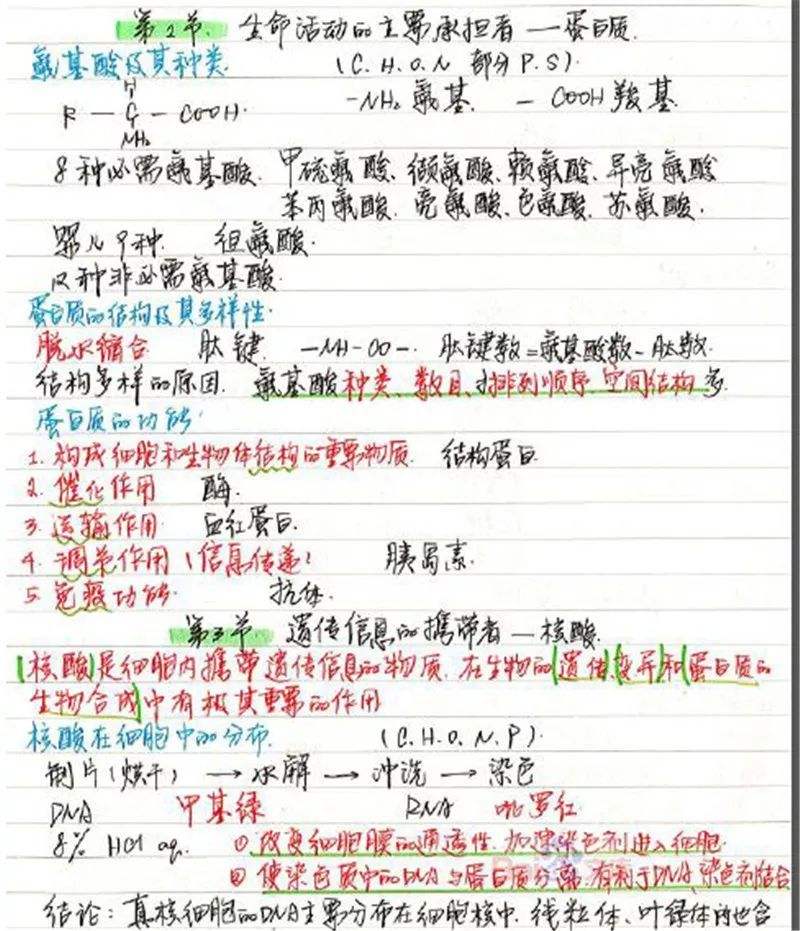 第2节. 生命活动的主要承担者 — 蛋白质.
氨基酸及其种类. (C. H. O. N 部分 P. S).
H
R — C — COOH. -NH₂ 氨基. - COOH 羧基
NH₂
8种必需氨基酸. 甲硫氨酸、缬氨酸、赖氨酸、异亮氨酸
苯丙氨酸. 亮氨酸、色氨酸、苏氨酸.
婴儿9种. 组氨酸.
12种非必需氨基酸.
蛋白质的结构及其多样性.
脱水缩合 肽键. -NH-CO-. 肽键数=氨基酸数-肽数.
结构多样的原因. 氨基酸种类、数目、排列顺序 空间结构 多
蛋白质的功能:
1. 构成细胞和生物体结构的重要物质. 结构蛋白
2. 催化作用 酶.
3. 运输作用. 血红蛋白.
4. 调节作用(信息传递) 胰岛素.
5. 免疫功能. 抗体.
第3节. 遗传信息的携带者 — 核酸.
核酸是细胞内携带遗传信息的物质. 在生物的遗传、变异和蛋白质的
生物合成中有极其重要的作用
核酸在细胞中的分布. (C. H. O. N. P).
制片(烘干) → 水解 → 冲洗 → 染色
DNA 甲基绿 RNA 吡罗红
8% HCl aq. ① 改变细胞膜的通透性. 加速染色剂进入细胞.
② 使染色质中的DNA与蛋白质分离. 有利于DNA、染色剂结合
结论: 真核细胞的DNA主要分布在细胞核中. 线粒体、叶绿体内也含